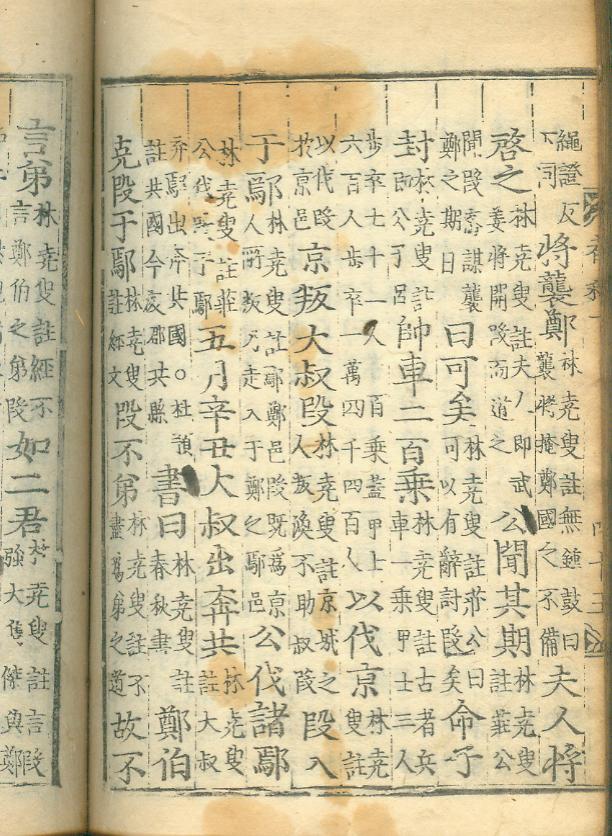 繩證反下同將襲鄭林堯叟註無鍾鼓曰襲將掩鄭國之不備夫人將
啓之林堯叟註夫人即武姜將開段而道之公聞其期林堯叟註莊公
聞段舊謀襲鄭之期日曰可矣林堯叟註莊公曰可以有辭討段矣命子
封林堯叟註即公子呂帥車二百乘林堯叟註古者兵車一乘甲士三人
步卒七十二人百乘蓋甲士六百人步卒一萬四千四百人以伐京林堯叟註
以伐段於京邑京叛大叔段林堯叟註京城之人叛渙不助叔段段入
于鄢林堯叟註鄢鄭邑段既爲京人所叛乃走入于鄭之鄢邑公伐諸鄢
林堯叟註莊公伐段于鄢五月辛丑大叔出奔共林堯叟註大叔
奔鄢出奔共國○杜預註共國今汲郡共縣書曰林堯叟註春秋書鄭伯
克段于鄢林堯叟註經文段不弟林堯叟註不盡爲弟之道故不
言弟林堯叟註經不言鄭伯之弟段如二君林堯叟註言段強大儁傑與鄭